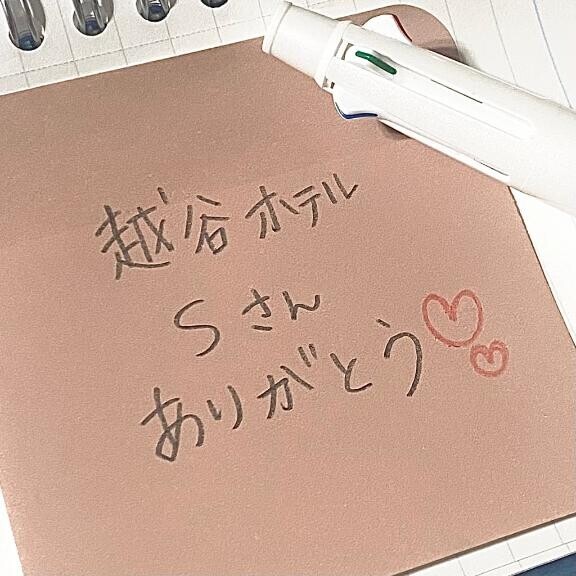 越谷ホテル
Sさん
ありがとう♡♡